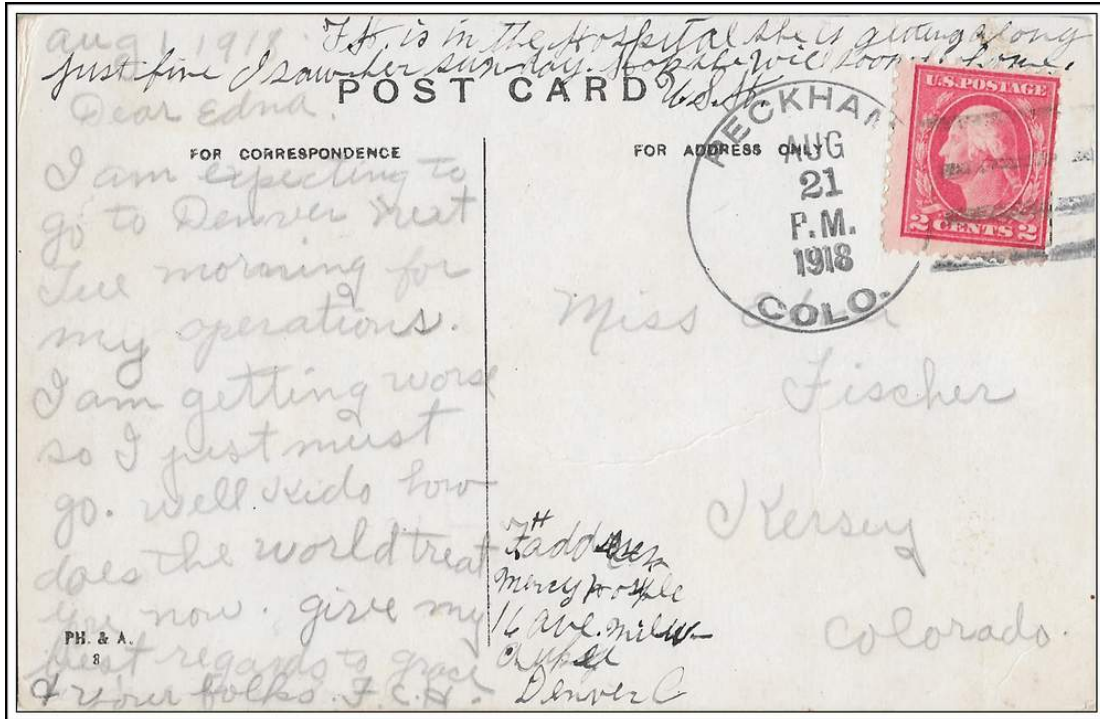 F.H. is in the Hospital she is getting along
just fine I saw her sunday. Hope she will soon be home.
U.S.H.
POST CARD
Aug 1 1918.
Dear Edna.
FOR CORRESPONDENCE
I am expecting to
go to Denver next
Tue morning for
my operations.
I am getting worse
so I just must
go. well kido how
does the world treat
you now. give my
best regards to grace
& your folks. F.C.H.
PH. & A.
8
FOR ADDRESS ONLY
PECKHAM
AUG
21
P.M.
1918
COLO.
U.S. POSTAGE
2 CENTS 2
Miss Edna
Fischer
Kersey
Colorado.
FH address
Mercy
16 ave. Milw-
Denver C